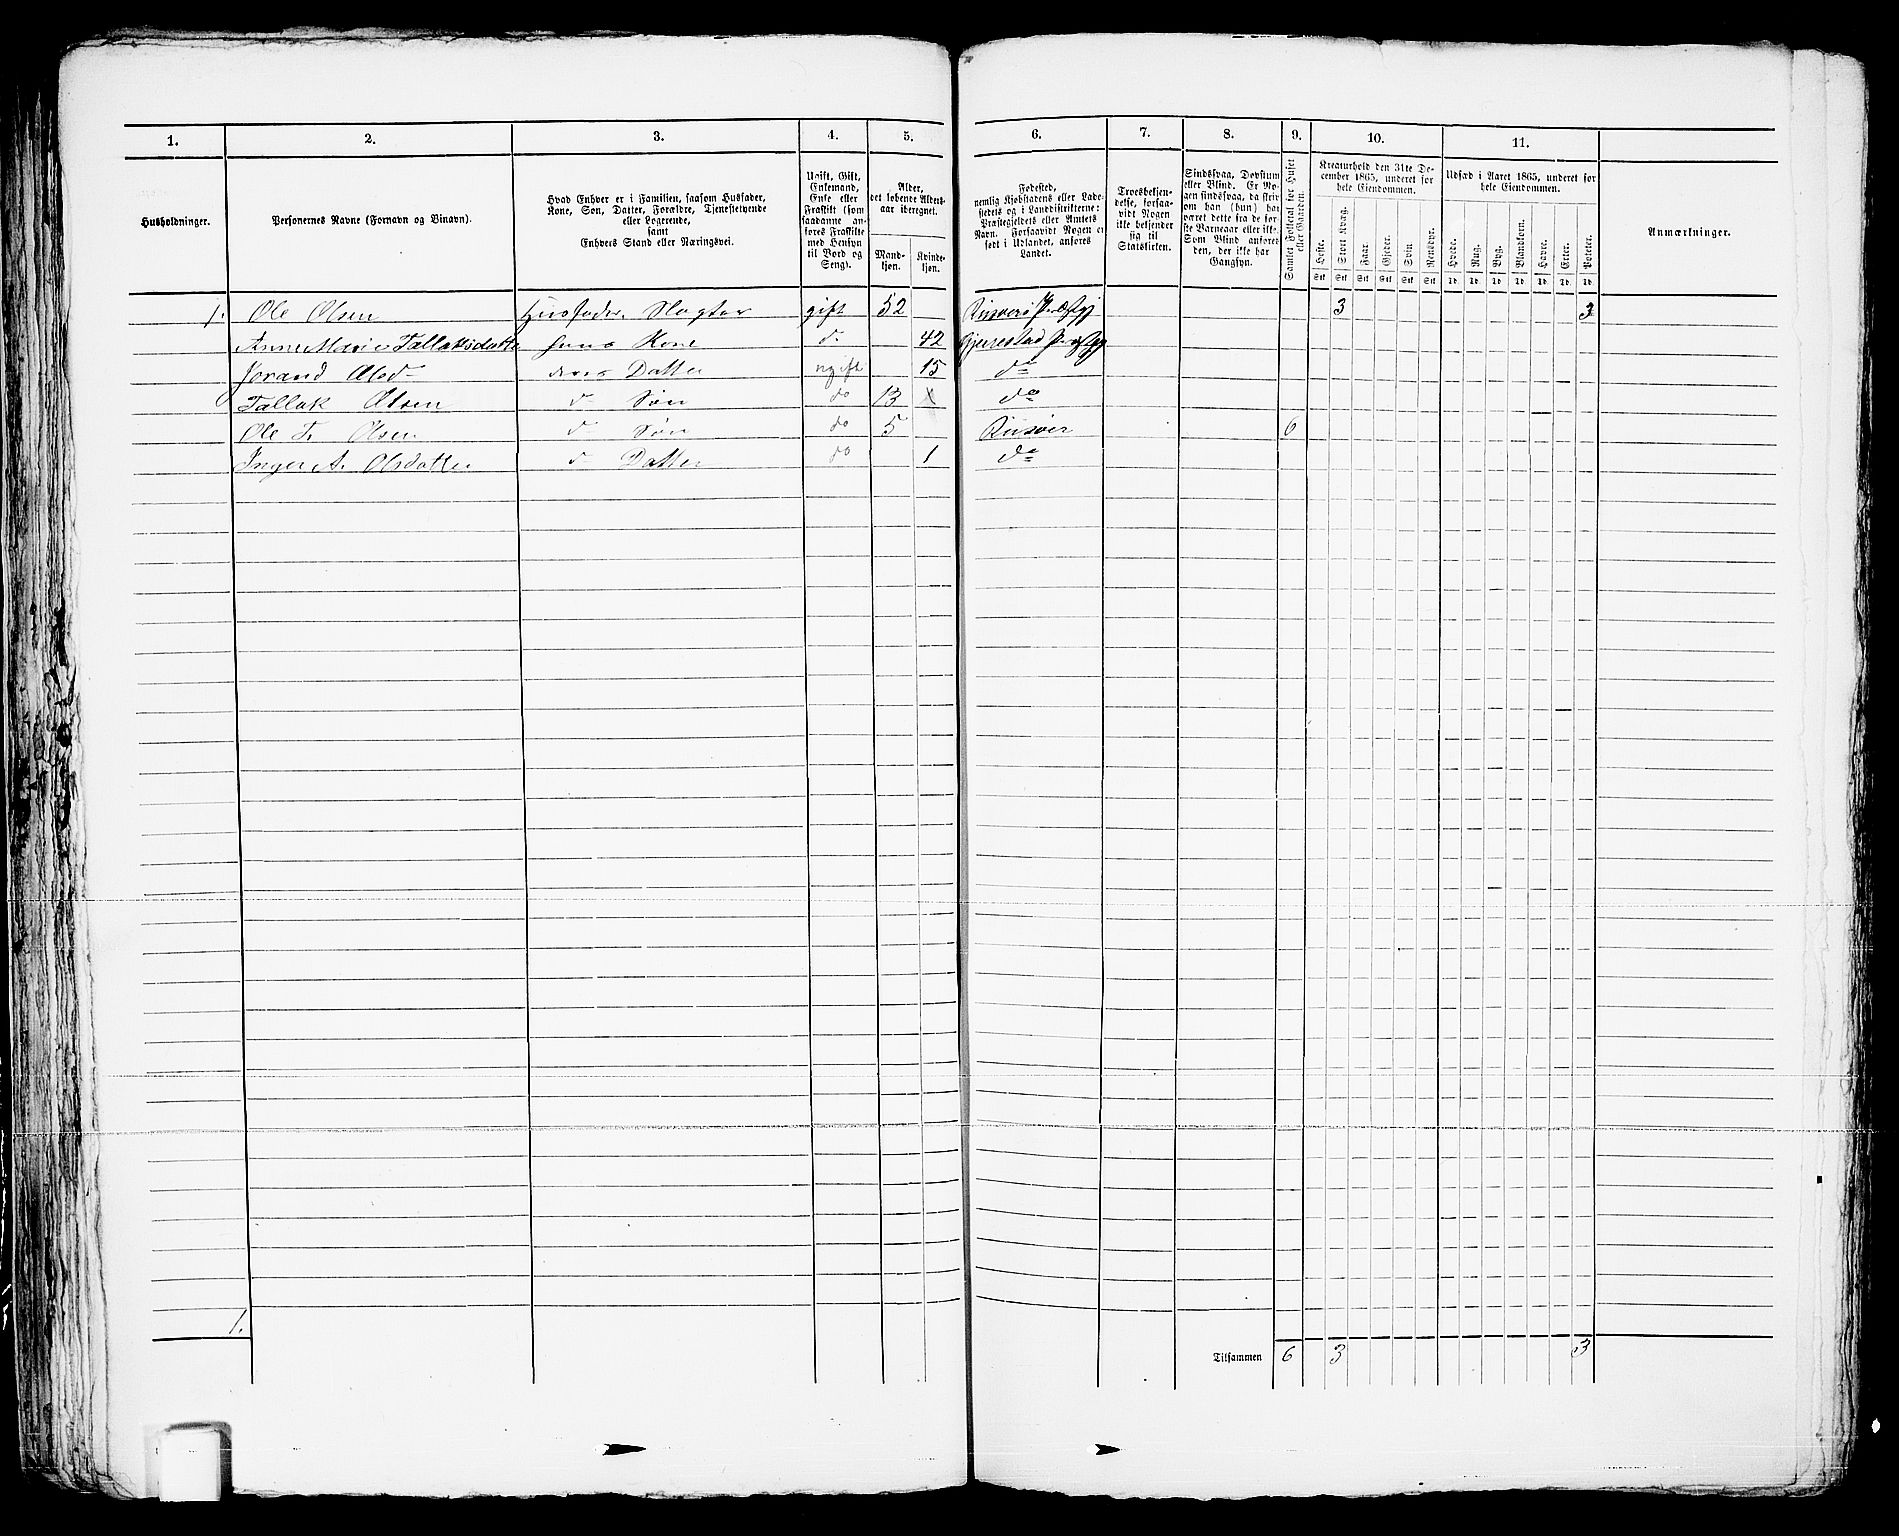 1. 2. 3. 4. 5. 6. 7. 8. 9. 10. 11.
Husholdninger.
Personernes Navne (Fornavn og Binavn).
Hvad Enhver er i Familien, saasom Husfader,
Kone, Søn, Datter, Forældre, Tjenestetyende
eller Logerende,
samt
Enhvers Stand eller Næringsvei.
Ugift, Gift,
Enkemand,
Enke eller
Fraskilt (som
saadanne an-
føres Fraskilte
med Hensyn
til Bord og
Seng).
Alder,
det løbende Alders-
aar iberegnet.
Mand-
kjøn.
Kvinde-
kjøn.
Fødested,
nemlig Kjøbstadens eller Lade-
stedets og i Landdistrikterne:
Præstegjeldets eller Amtets
Navn. Forsaavidt Nogen er
født i Udlandet, anføres
Landet.
Troesbekjen-
delse, forsaa-
vidt Nogen
ikke bekjender
sig til
Statskirken.
Sindssvag, Døvstum
eller Blind. Er No-
gen sindssvag, da skriv
om han (hun) har
været dette fra de før-
ste Barneaar eller ikke.
Som Blind anføres
den, der ikke har
Gangsyn.
Samlet Folketal for Huset
eller Gaarden.
Kreaturhold den 31te De-
cember 1865, underet for
hele Eiendommen.
Heste. Stort Kvæg. Faar. Gjeder. Svin. Rensdyr.
Stk Stk Stk Stk Stk Stk
Udsæd i Aaret 1865, underet for
hele Eiendommen.
Hvede. Rug. Byg. Blandkorn. Havre. Erter. Poteter.
Td. Td. Td. Td. Td. Td. Td.
Anmærkninger.
1. Ole Olsen Husfader Slagter gift 52 3 3
Anne Marie Tallaksdatter hans Kone do 42
Olsd Datter ugift 15 do
Tallak Olsen do Søn do 13 do
Ole T. Olsen do Søn do 5 Risøer 6
Inger A. Olsdatter do Datter do 1 do
1.
Tilsammen 6 3 3